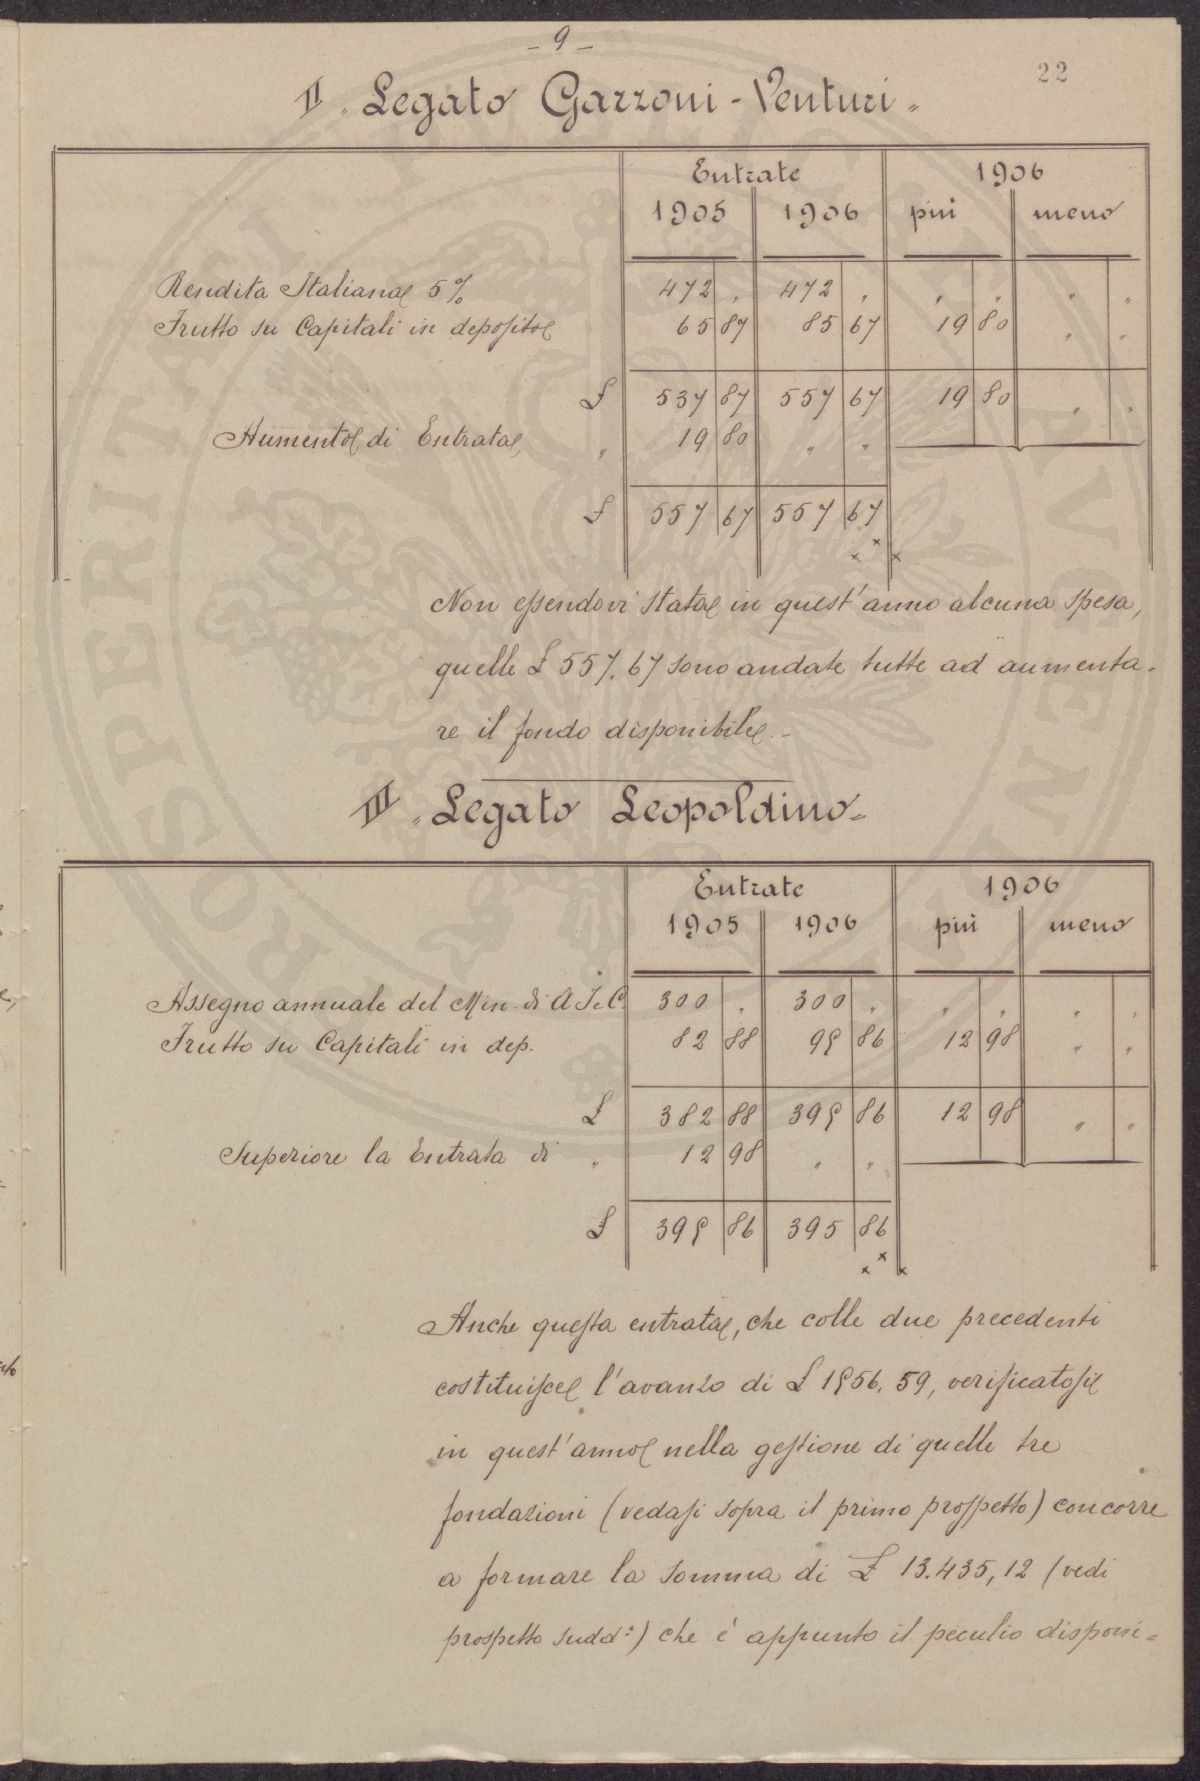 - 9 -
22
II " Legato Garzoni - Venturi "
Entrate 1906
1905 1906 più meno
Rendita Italiana 5% 472 " 472 " " " " "
Frutto su Capitali in deposito 65 87 85 67 19 80 " "
£ 537 87 557 67 19 80 " "
Aumento di Entrata, " 19 80 " "
£ 557 67 557 67
Non essendovi stata in quest'anno alcuna spesa,
quelle £ 557.67 sono andate tutte ad aumenta-
re il fondo disponibile.-
III " Legato Leopoldino "
Entrate 1906
1905 1906 più meno
Assegno annuale del Min. di A. I. e C. 300 " 300 " " " " "
Frutto su Capitali in dep. 82 88 95 86 12 98 " "
£ 382 88 395 86 12 98 " "
Superiore la Entrata di " 12 98 " "
£ 395 86 395 86
Anche questa entrata, che colle due precedenti
costituisce l'avanzo di £ 1556.59, verificatosi
in quest'anno nella gestione di quelle tre
fondazioni (vedasi sopra il primo prospetto) concorre
a formare la somma di £ 13.435,12 (vedi
prospetto sudd.º) che è appunto il peculio disponi=
PROSPERITATI PUBLICAE AVGENDAE